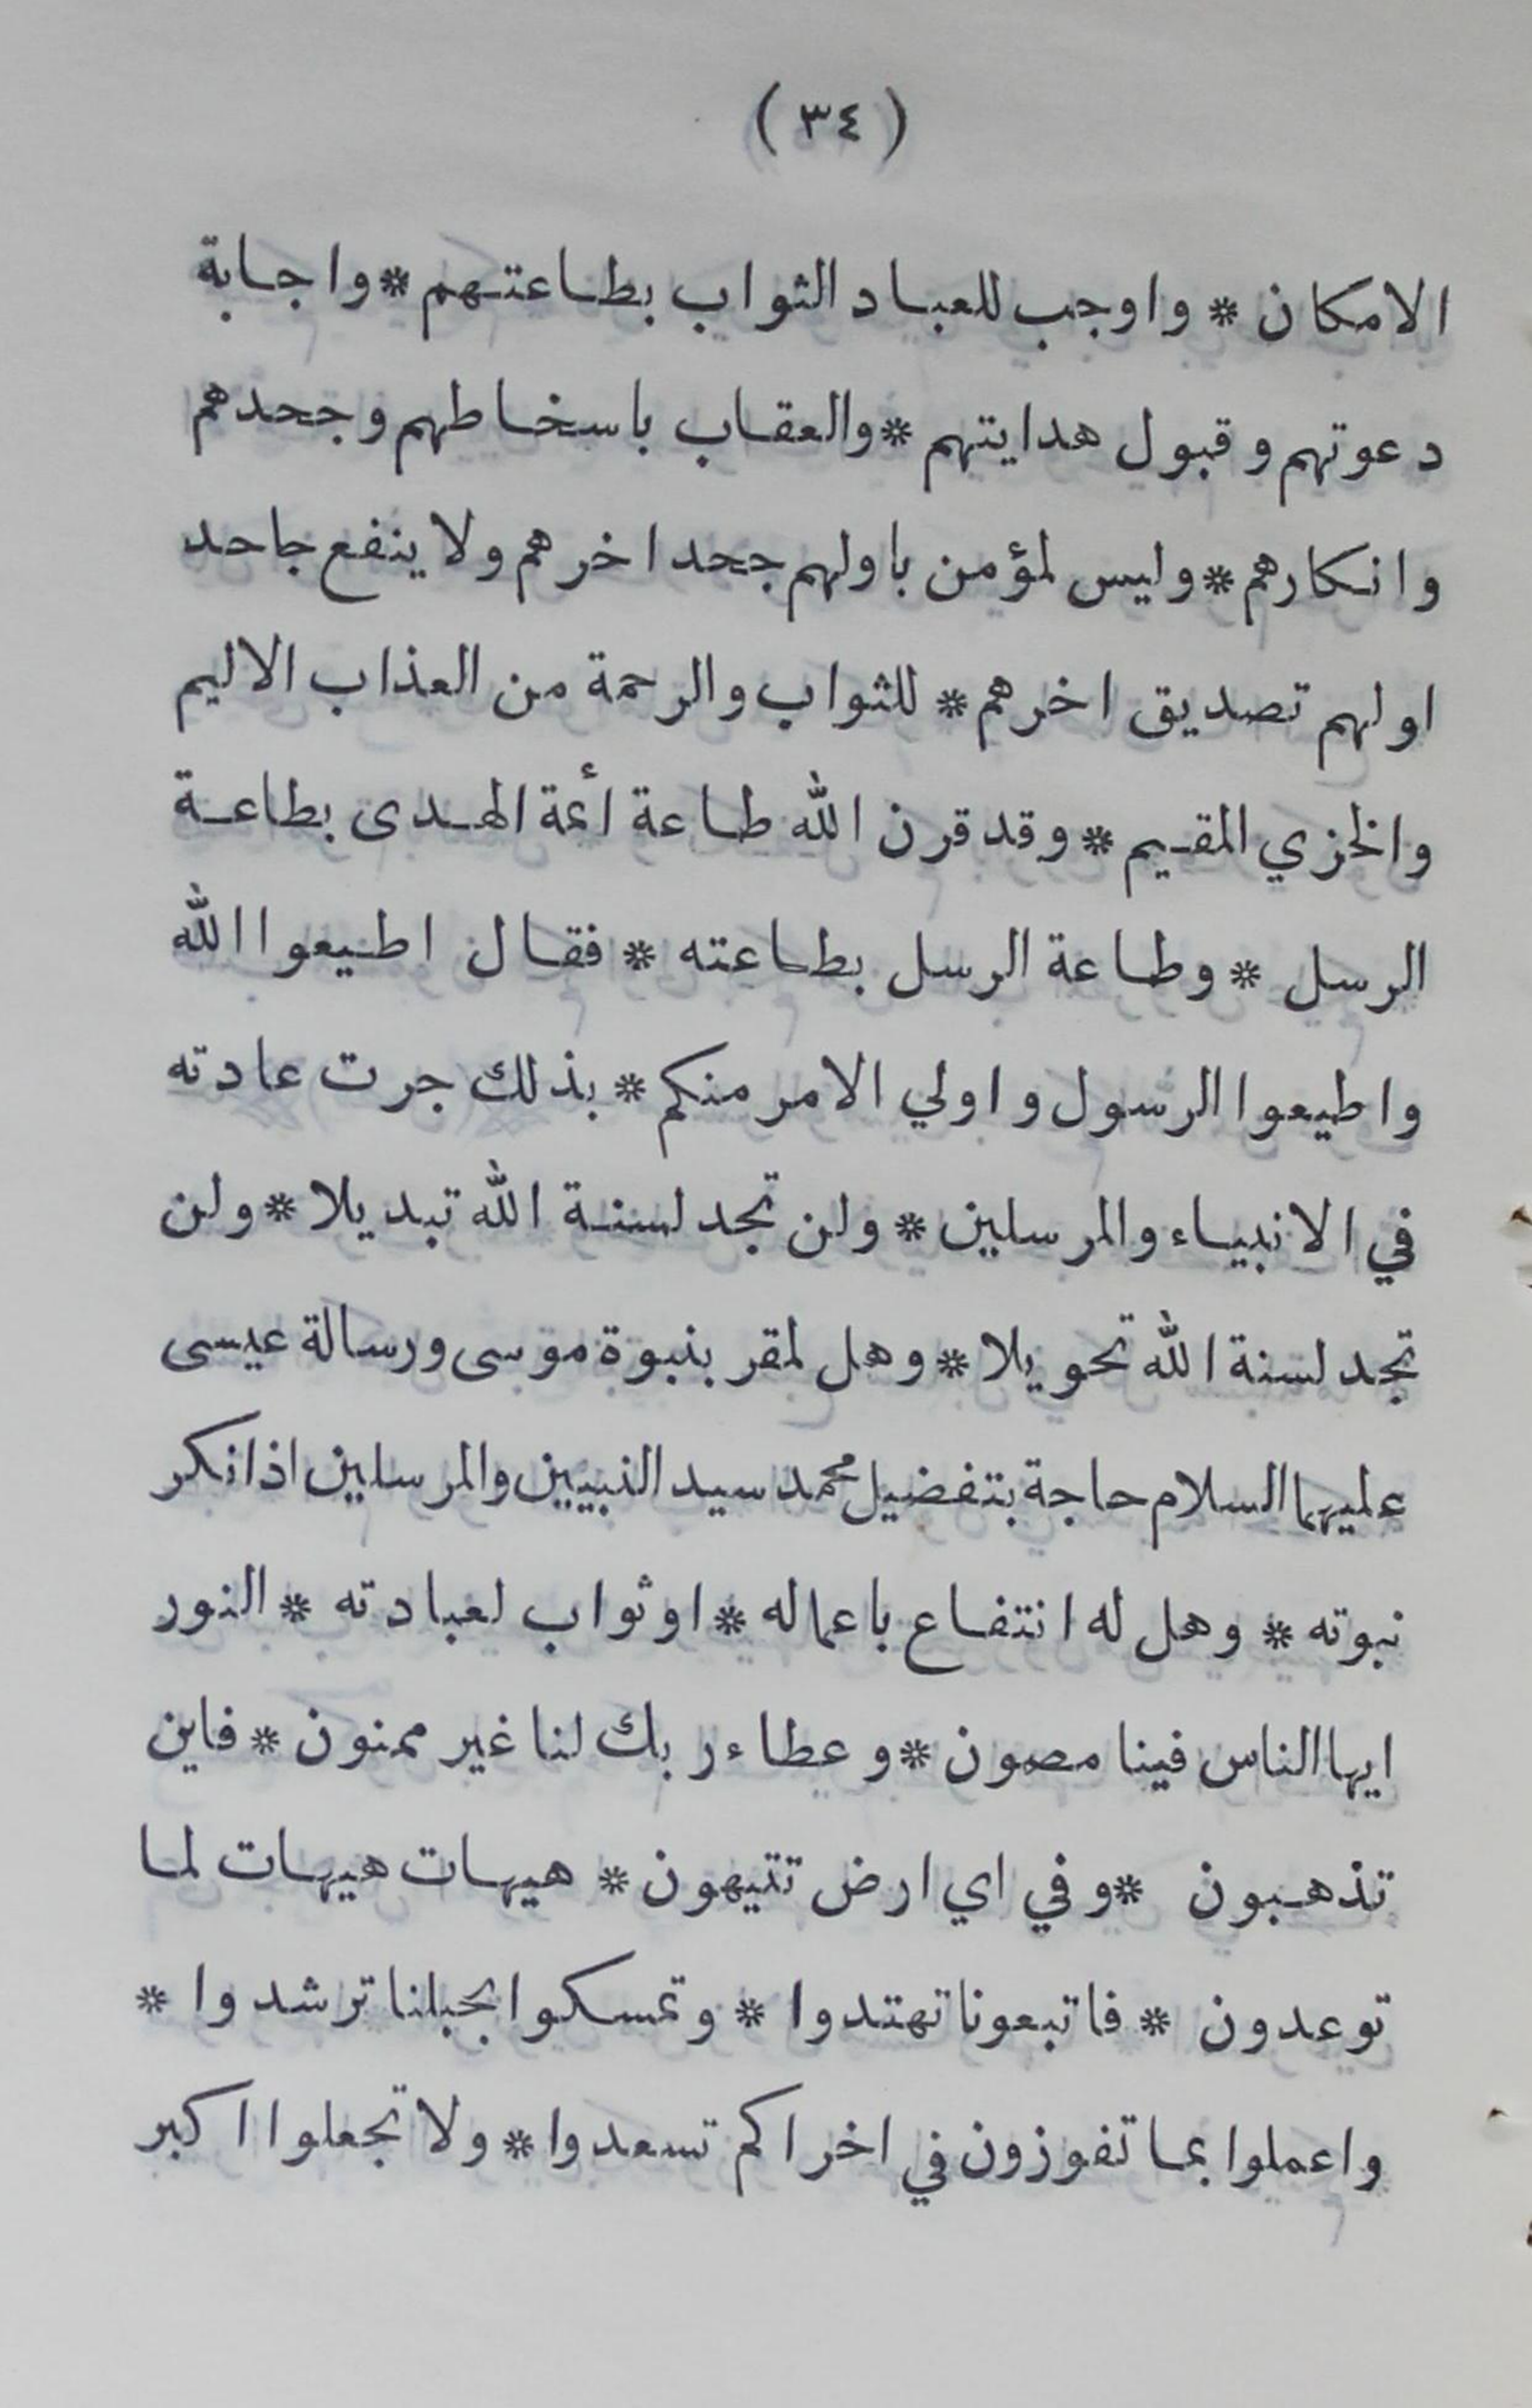 (٣٤)
الامكان * واوجب للعباد الثواب بطاعتهم * واجابة
دعوتهم وقبول هدايتهم * والعقاب باسخاطهم وجحدهم
وانكارهم * وليس لمؤمن باولهم جحد اخرهم ولا ينفع جاحد
اولهم تصديق اخرهم * للثواب والرحمة من العذاب الاليم
والخزي المقيم * وقد قرن الله طاعة أئمة الهدى بطاعة
الرسل * وطاعة الرسل بطاعته * فقال اطيعوا الله
واطيعوا الرسول واولي الامر منكم * بذلك جرت عادته
في الانبياء والمرسلين * ولن تجد لسنة الله تبديلا * ولن
تجد لسنة الله تحويلا * وهل لمقر بنبوة موسى ورسالة عيسى
عليهما السلام حاجة بتفضيل محمد سيد النبيين والمرسلين اذا نكر
نبوته * وهل له انتفاع باعماله * او ثواب لعبادته * النور
ايها الناس فينا مصون * وعطاء ربك لنا غير ممنون * فاين
تذهبون * وفي اي ارض تتيهون * هيهات هيهات لما
توعدون * فاتبعونا تهتدوا * وتمسكوا بحبلنا ترشدوا *
واعملوا بما تفوزون في اخراكم تسعدوا * ولا تجعلوا اكبر